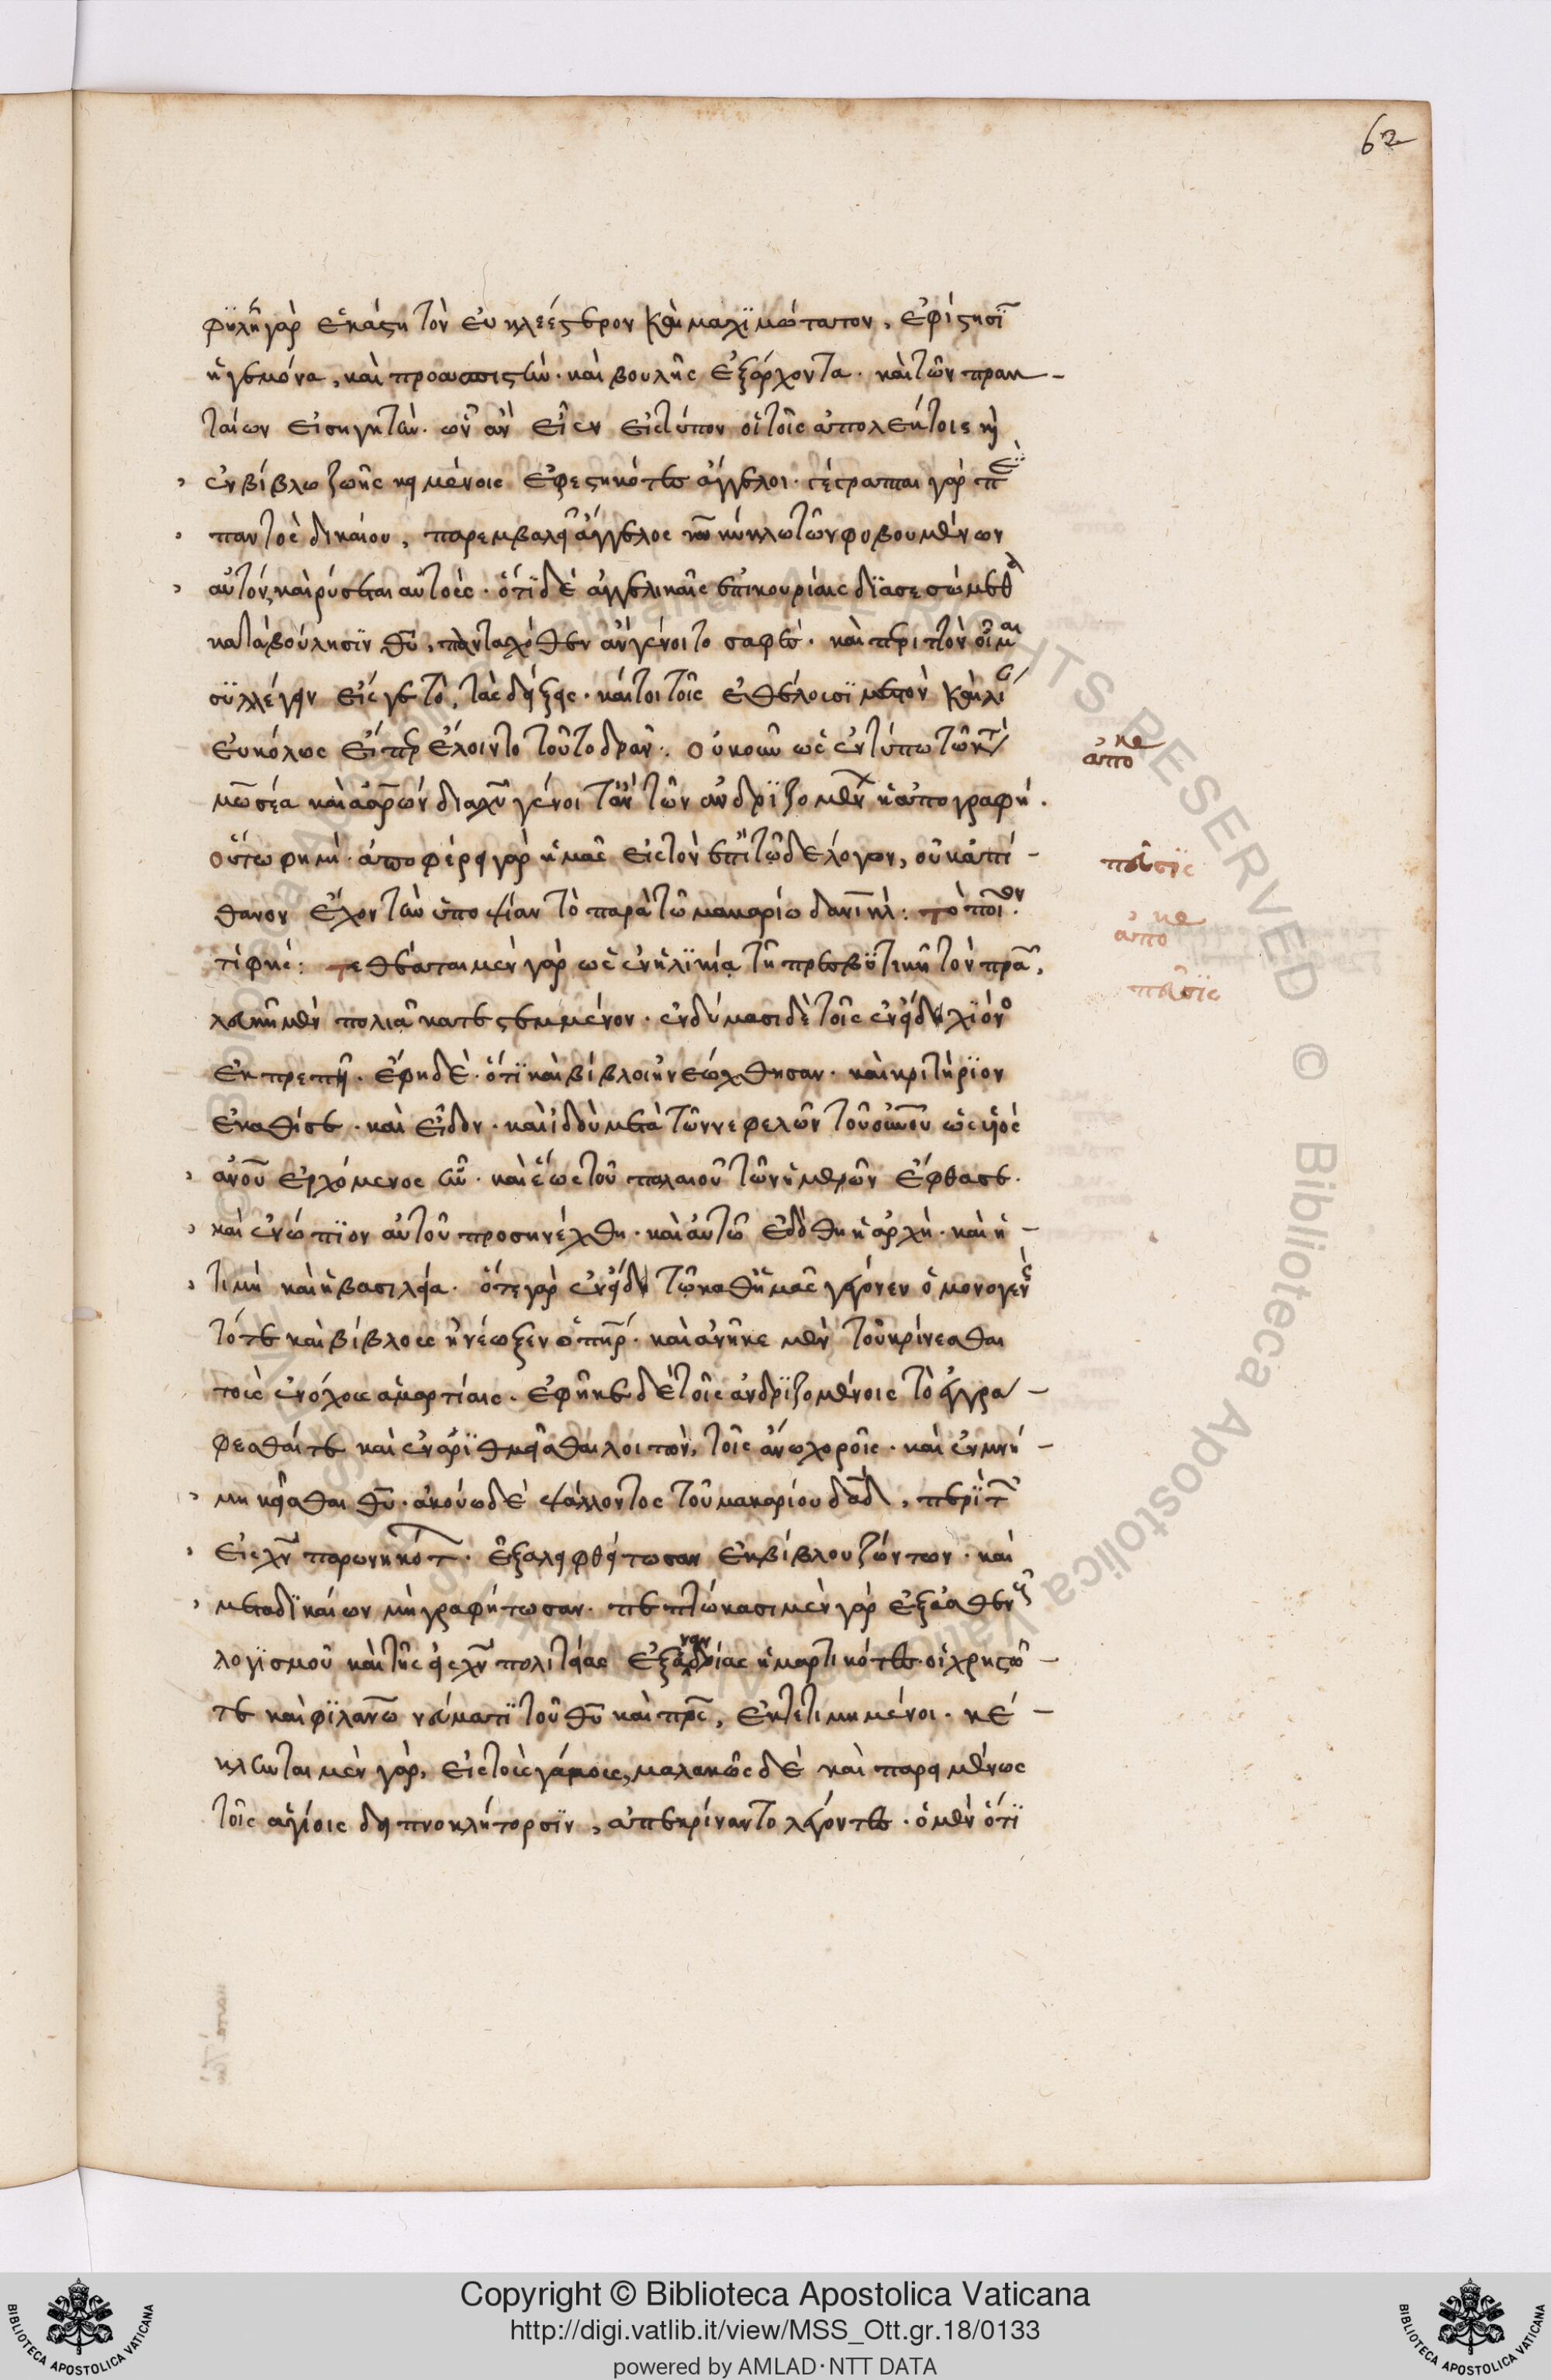 62
φυλῇ γὰρ ἑκάστη τὸν εὐκλεέστερον καὶ μαχιμώτατον, ἐφίστησῖ
ἡγεμόνα, καὶ προασπιστὴν· καὶ βουλῆς ἐξάρχοντα· καὶ τῶν πρακ-
ταίων εἰσηγητήν· ὧν ἂν εἶεν εἰς τύπον οἱ τοῖς ἀπολέκτοις κὶ
ἐν βίβλω ζωῆς κειμένοις ἐφεστηκότες ἄγγελοι· γέγραπται γὰρ π ἐϊ
παντὸς δικαίου, παρεμβαλεῖ ἄγγελος κῦ κύκλω τῶν φοβουμένων
αὐτὸν, καὶ ρύσεται αὐτοὺς· ὅτι δὲ ἀγγελικαῖς ἐπικουρίαις διασεσώμεθα
κατὰ βούλησιν θῦ, πανταχόθεν ἂν γένοιτο σαφὲς· καὶ περιττὸν οἶμαι
συλλέγειν εἰς γε τὸ, τὰς δείξεις· καίτοι τοῖς ἐθέλουσι μεστὸν καὶ λι
εὐκόλως εἴπερ ἕλοιντο τοῦτο δρᾶν· οὐκοῦν ὡς ἐν τύπω τῶν κτ
μωσέα καὶ ἀαρών διὰ χῦ γένοιτ' ἂν τῶν ἀνδριζομένων ἡ ἀπογραφή.
οὕτω φημὶ· ἀποφέρει γὰρ ἡμᾶς εἰς τὸν ἐπὶ τῶδε λόγον, οὐκ ἀπί-
θανον ἔχον τὴν ὑποψίαν τὸ παρὰ τῶ μακαρίω δανιήλ: τὸ ποῖον
τί φης: τεθέαται μὲν γὰρ ὡς ἐν ἡλικία τῆ πρεσβυτικῆ τὸν πρα,
λευκῆ μὲν πολιᾶ κατεστεμμένον· ἐνδύμασι δὲ τοῖς ἐν εἴδει χιόνος
ἐκπρεπῆ· ἔφη δὲ· ὅτι καὶ βίβλοι ἠνεώχθησαν· καὶ κριτήριον
ἐκαθισε· καὶ εἶδον· καὶ ἰδοὺ μετὰ τῶν νεφελῶν τοῦ οὐνοῦ ὡς υἱὸς
ἀνοῦ ἐρχόμενος ἦν· καὶ ἕως τοῦ παλαιοῦ τῶν ἡμερῶν ἔφθασε·
καὶ ἐνώπιον αὐτοῦ προσηνέχθη· καὶ αὐτῶ ἐδόθη ἡ ἀρχὴ· καὶ ἡ-
τιμὴ καὶ ἡ βασιλεία· ὅτε γὰρ ἐν εἴδει τῶ καθ' ἡμᾶς γέγονεν ὁ μονογενὴς
τότε καὶ βίβλους ἠνέωξεν ὁ πηρ· καὶ ἀνῆκε μὲν τοῦ κρίνεσθαι
τοὺς ἐνόχους ἁμαρτίαις· ἐφῆκε δὲ τοῖς ἀνδριζομένοις τὸ ἐγγρα-
φεσθαί τε καὶ ἐναριθμεῖσθαι λοιπὸν, τοῖς ἄνω χοροῖς· καὶ ἐν μνή-
μη κεῖσθαι θῦ· ἀκούω δὲ ψάλλοντος τοῦ μακαρίου δαδ, περὶ τ
εἰς χν παρωνηκότ· ἐξαλειφθήτωσαν ἐκ βίβλου ζώντων· καὶ
μετὰ δικαίων μὴ γραφήτωσαν· πεπτώκασι μὲν γὰρ ἐξ εὐσθενοῦς
λογισμοῦ καὶ τῆς εἰς χν πολιτείας ἐξ ἀνανδρίας ἡμαρτικότες· οἱ χρηστῶ-
τε καὶ φιλανω νεύματι τοῦ θῦ καὶ προς, ἐκτετιμημένοι· κέ-
κληνται μὲν γὰρ, εἰς τοὺς γάμους, μαλακῶς δὲ καὶ παρειμένως
τοῖς ἁγίοις δειπνοκλήτορσιν, ἀπεκρίναντο λέγοντες· ὁ μὲν ὅτι
ἀπο κε
παῦσις
ἀπο κε
παῦσις
Copyright © Biblioteca Apostolica Vaticana
http://digi.vatlib.it/view/MSS_Ott.gr.18/0133
powered by AMLAD·NTT DATA